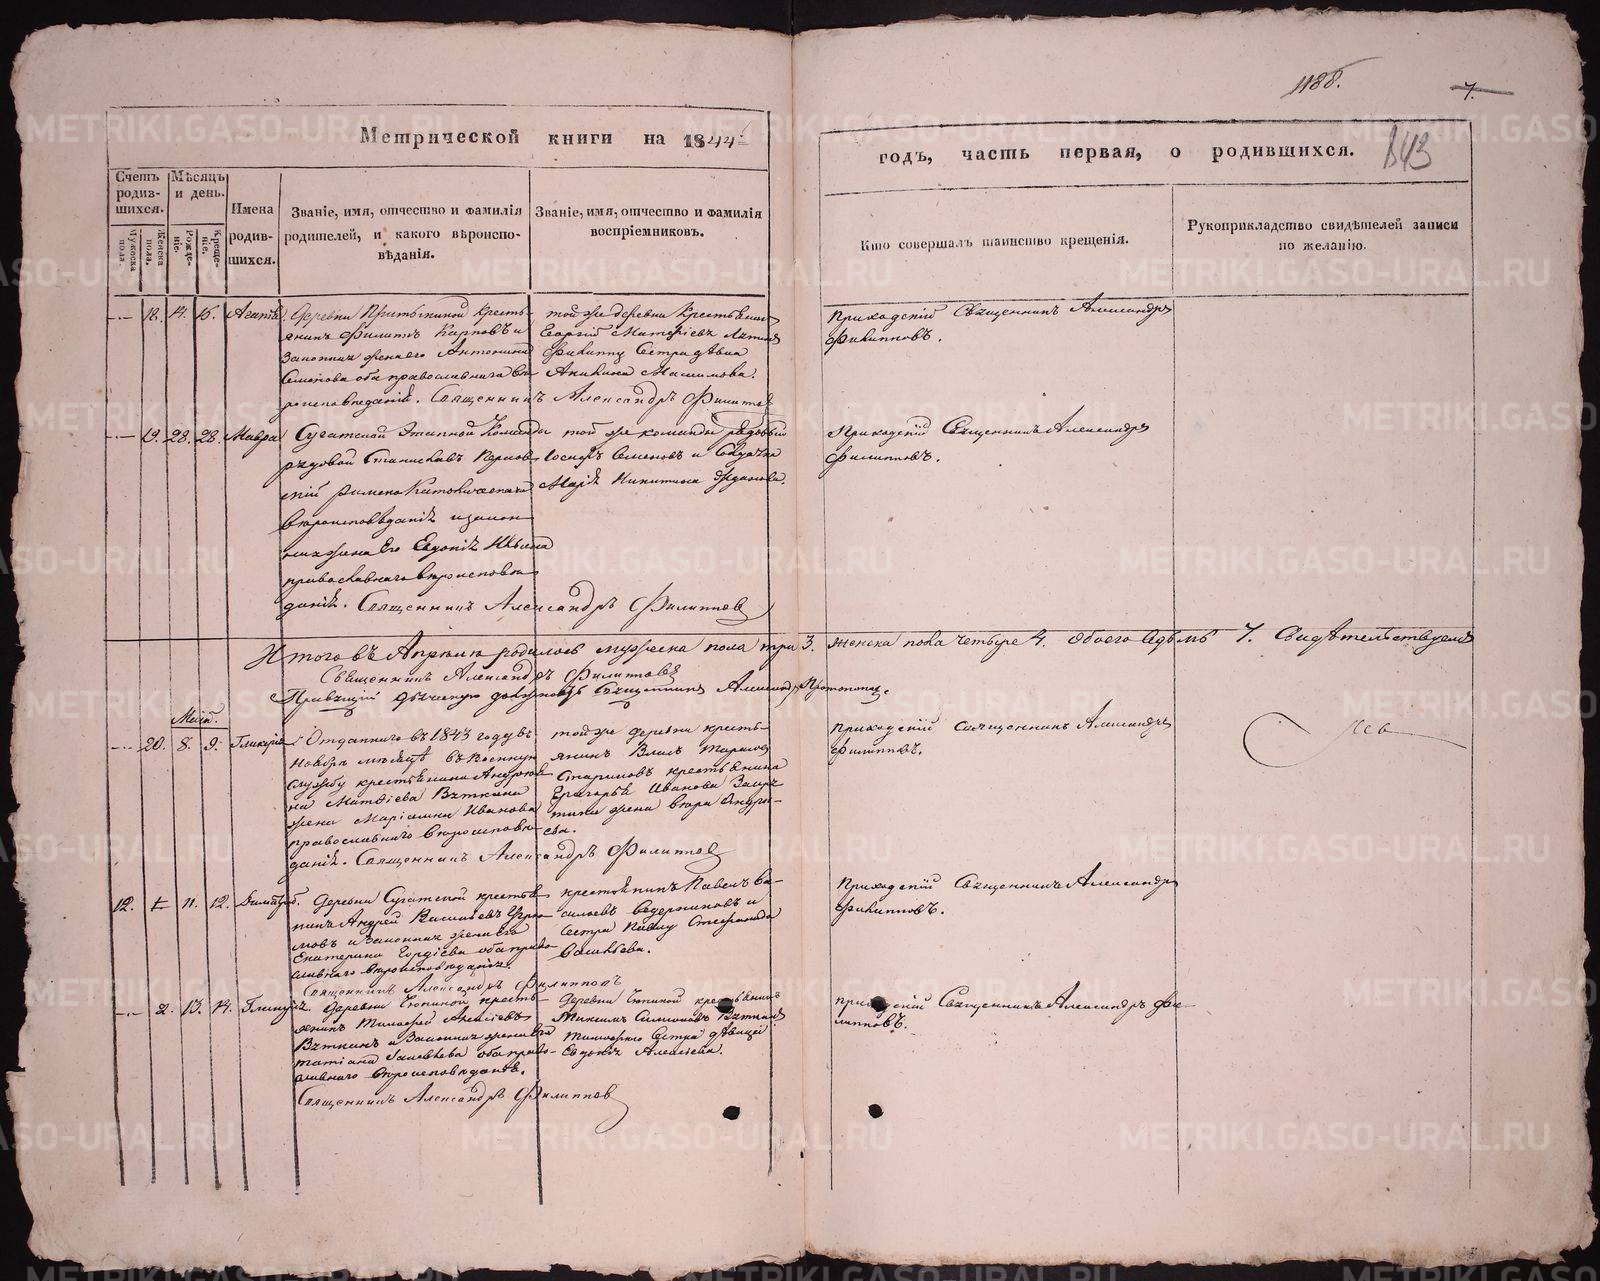 1188.
7.
843
Метрической книги на 1844
годъ, часть первая, о родившихся.
Счетъ родив-шихся.
Мѣсяцъ и день.
Имена родив-шихся.
Званіе, имя, отчество и фамилія родителей, и какого вѣроиспо-вѣданія.
Званіе, имя, отчество и фамилія воспріемниковъ.
Кто совершалъ таинство крещенія.
Рукоприкладство свидѣтелей записи по желанію.
Мужеска пола.
Женска пола.
Рожде-ніе.
Креще-ніе.
18. 14. 16.
Деревни Кресть-
янинъ Филиппъ Карповъ и
Законная жена его Антонина
Семенова оба православнаго вѣ-
роисповеданія. Священникъ Александръ Филиппов
той же деревни Крестьянинъ
Георгій
Филиппу Сестра дѣвка
Акилина Максимова.
Приходскій Священникъ Александръ
Филипповъ.
19. 28. 28. Мавра
Сугатской Этапной Команды
рядовой Станиславъ
скій Римско Католическаго
вѣроисповѣданія и закон
ная жена Его Евдокія Ильина
православнаго вѣроиспове
данія. Священникъ Александръ Филиппов
той же команды рядовый
Іосифъ Семеновъ и Солдатка
Марія Никитина Жданова.
Приходскій Священникъ Александръ
Филипповъ.
Итого въ Апрѣлѣ родилось мужеска пола три 3. женска пола четыре 4. Обоего Седьмь 7. Свидѣтельствуемъ
Священникъ Александръ Филиппов
Священникъ Александръ
Маій.
20. 8. 9. Гликерія
Отданнаго въ 1843 году въ
Ноября мѣсяцѣ въ военную
Службу крестьянина Андреяна
Матвіева Вяткина
жена Маріамна Иванова
православнаго вѣроисповѣ-
данія. Священникъ Александръ Филиппов
той же деревни кресть-
янинъ Власъ
Стариковъ крестьянина
Григорья Иванова
жена Вѣра Андре-
ева.
Приходскій Священникъ Александръ
Филипповъ.
12. 11. 12. Димитрій.
Деревни Сугатской кресть
янинъ Андрей Васильевъ Угрю
мовъ и Законная жена его
Екатерина Гордіева оба право
славнаго вѣроисповѣданія.
Священникъ Александръ Филиппов
крестьянинъ Павелъ Ва-
сильевъ и
Сестра Павлу Стефанида
Васильева.
Приходскій Священникъ Александръ
Филипповъ.
2. 13. 14.
Деревни Тюпиной кресть-
янинъ Тимофей Алексіевъ
Вяткинъ и Законная жена его
Татіана оба право-
славнаго вѣроисповѣданія.
Священникъ Александръ Филиппов
Деревни Тюпиной крестьянинъ
Максимъ Симіоновъ Вяткинъ
Тимофею Сестра дѣвица
Евдокія Алексіева.
Приходскій Священникъ Александръ Фи-
липповъ.
METRIKI.GASO-URAL.RU